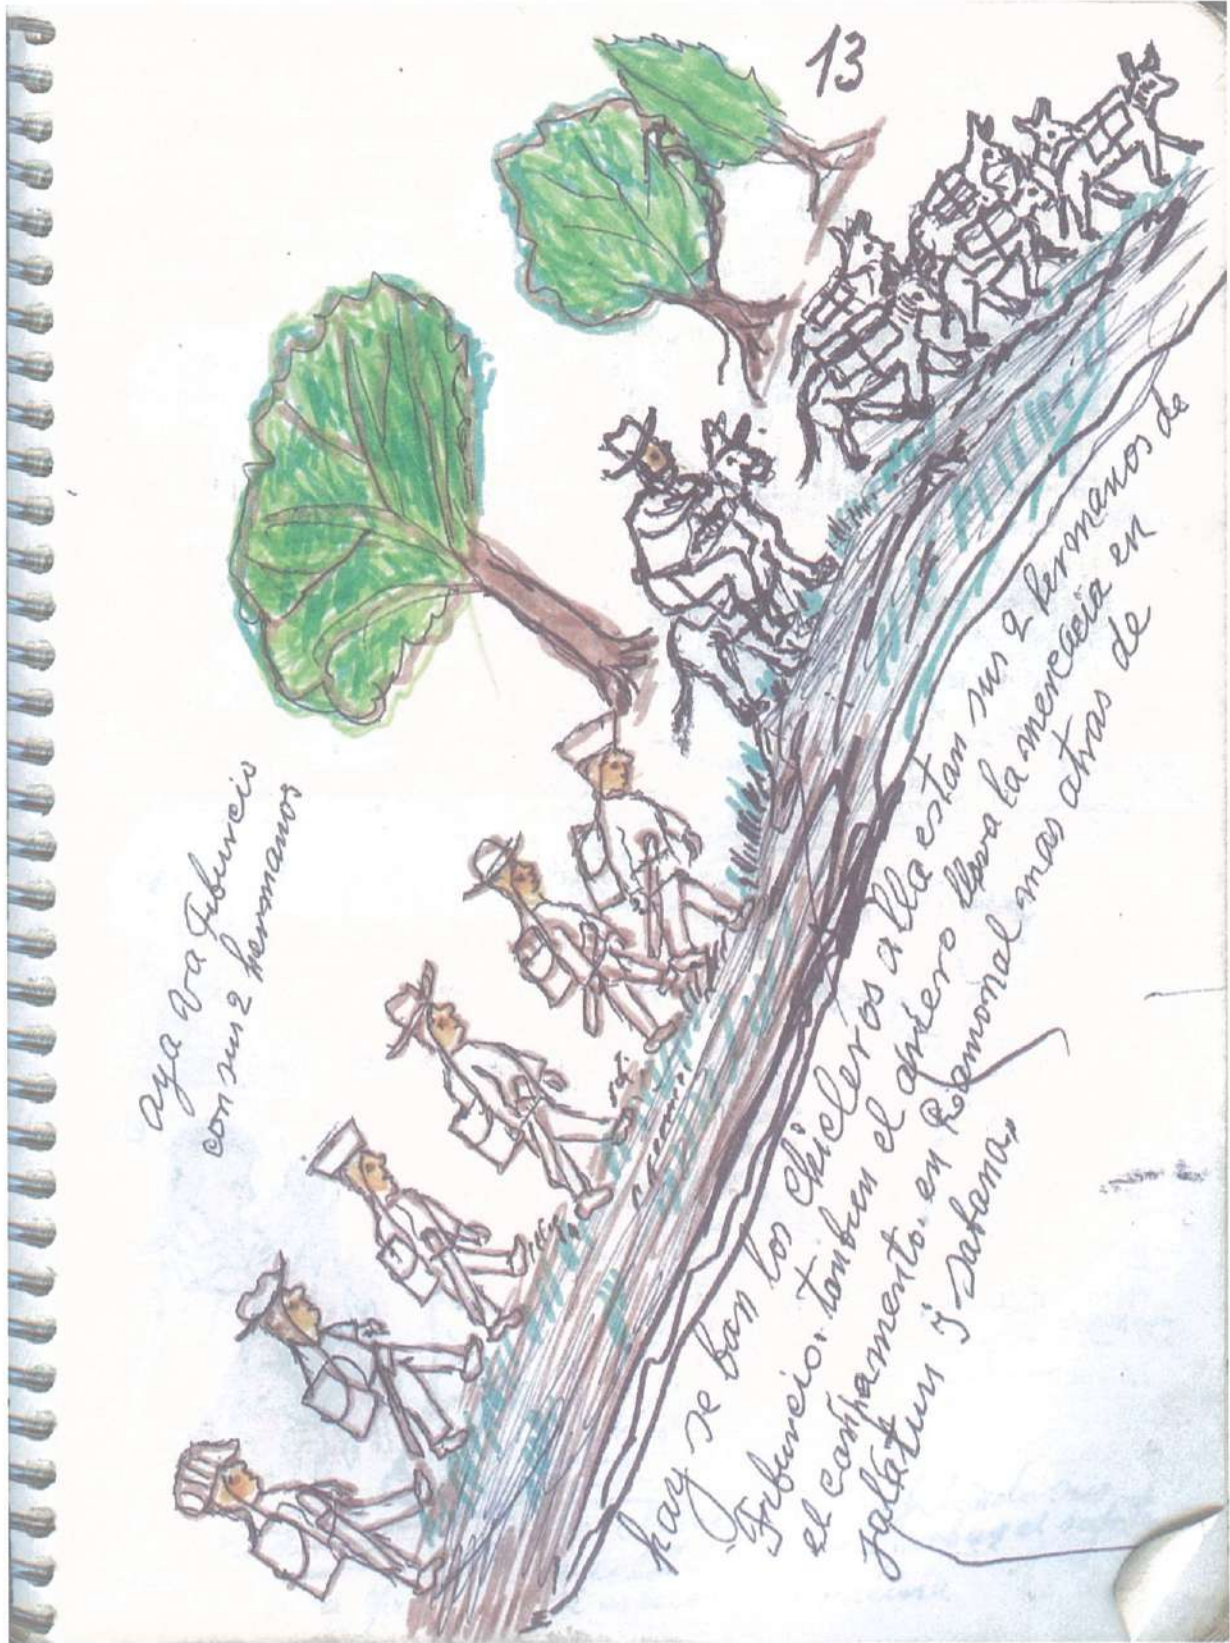 13
aya va Tiburcio
con sus 2 hermanos
hay se ban los chicleros alla estan sus 2 hermanos de
Tiburcio. tanbien el arriero lleva la mercacia en
el campamento. en Ramonal mas atras de
jalatun y sabana